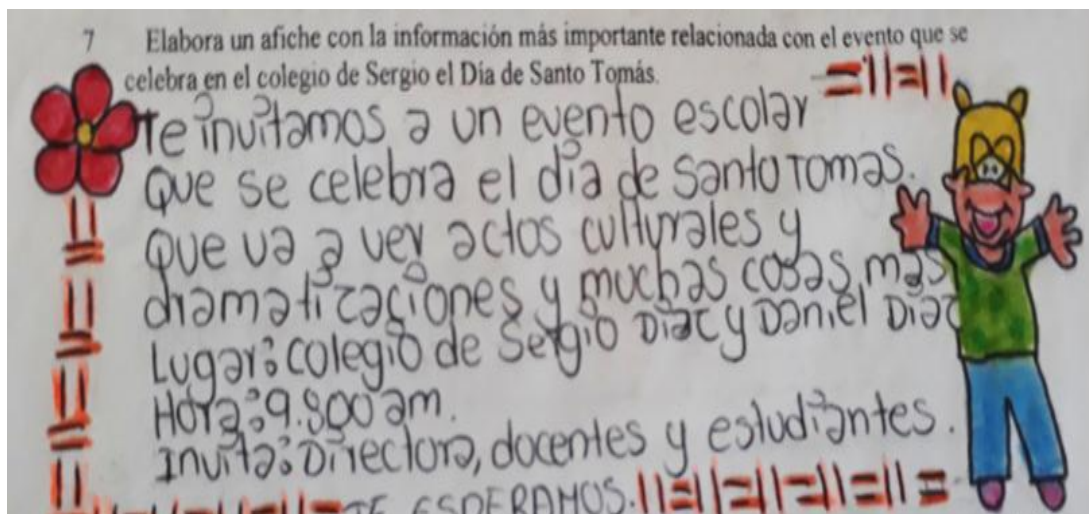 7 Elabora un afiche con la información más importante relacionada con el evento que se
celebra en el colegio de Sergio el Día de Santo Tomás.
Te invitamos a un evento escolar
Que se celebra el dia de Santo Tomas.
Que va a ver actos culturales y
dramatizaciones y muchas cosas mas
Lugar: colegio de Sergio Diaz y Daniel Diaz
Hora: 9.800 am.
Invita: Directora, docentes y estudiantes.
TE ESPERAMOS.